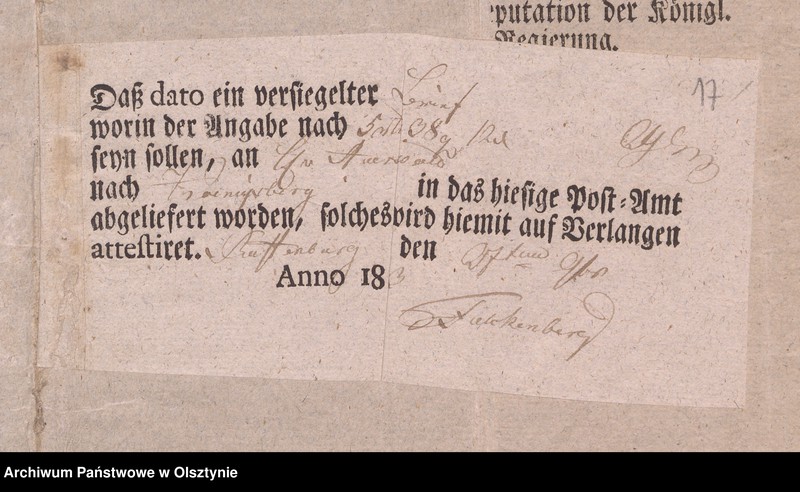 putation der Königl.
Regierung.
17
Daß dato ein versiegelter Brief
worin der Angabe nach 5 rtl 38 g
seyn sollen, an Hr v Auerswald
nach Koenigsberg in das hiesige Post-Amt
abgeliefert worden, solches wird hiemit auf Verlangen
attestiret. Rastenburg den
Anno 18 3
v Falckenberg
Archiwum Państwowe w Olsztynie